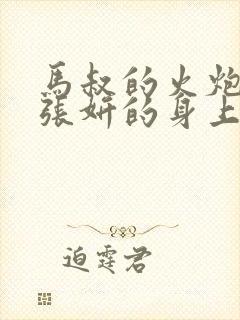 馬叔的火炮
張妍的身上
迫霆君